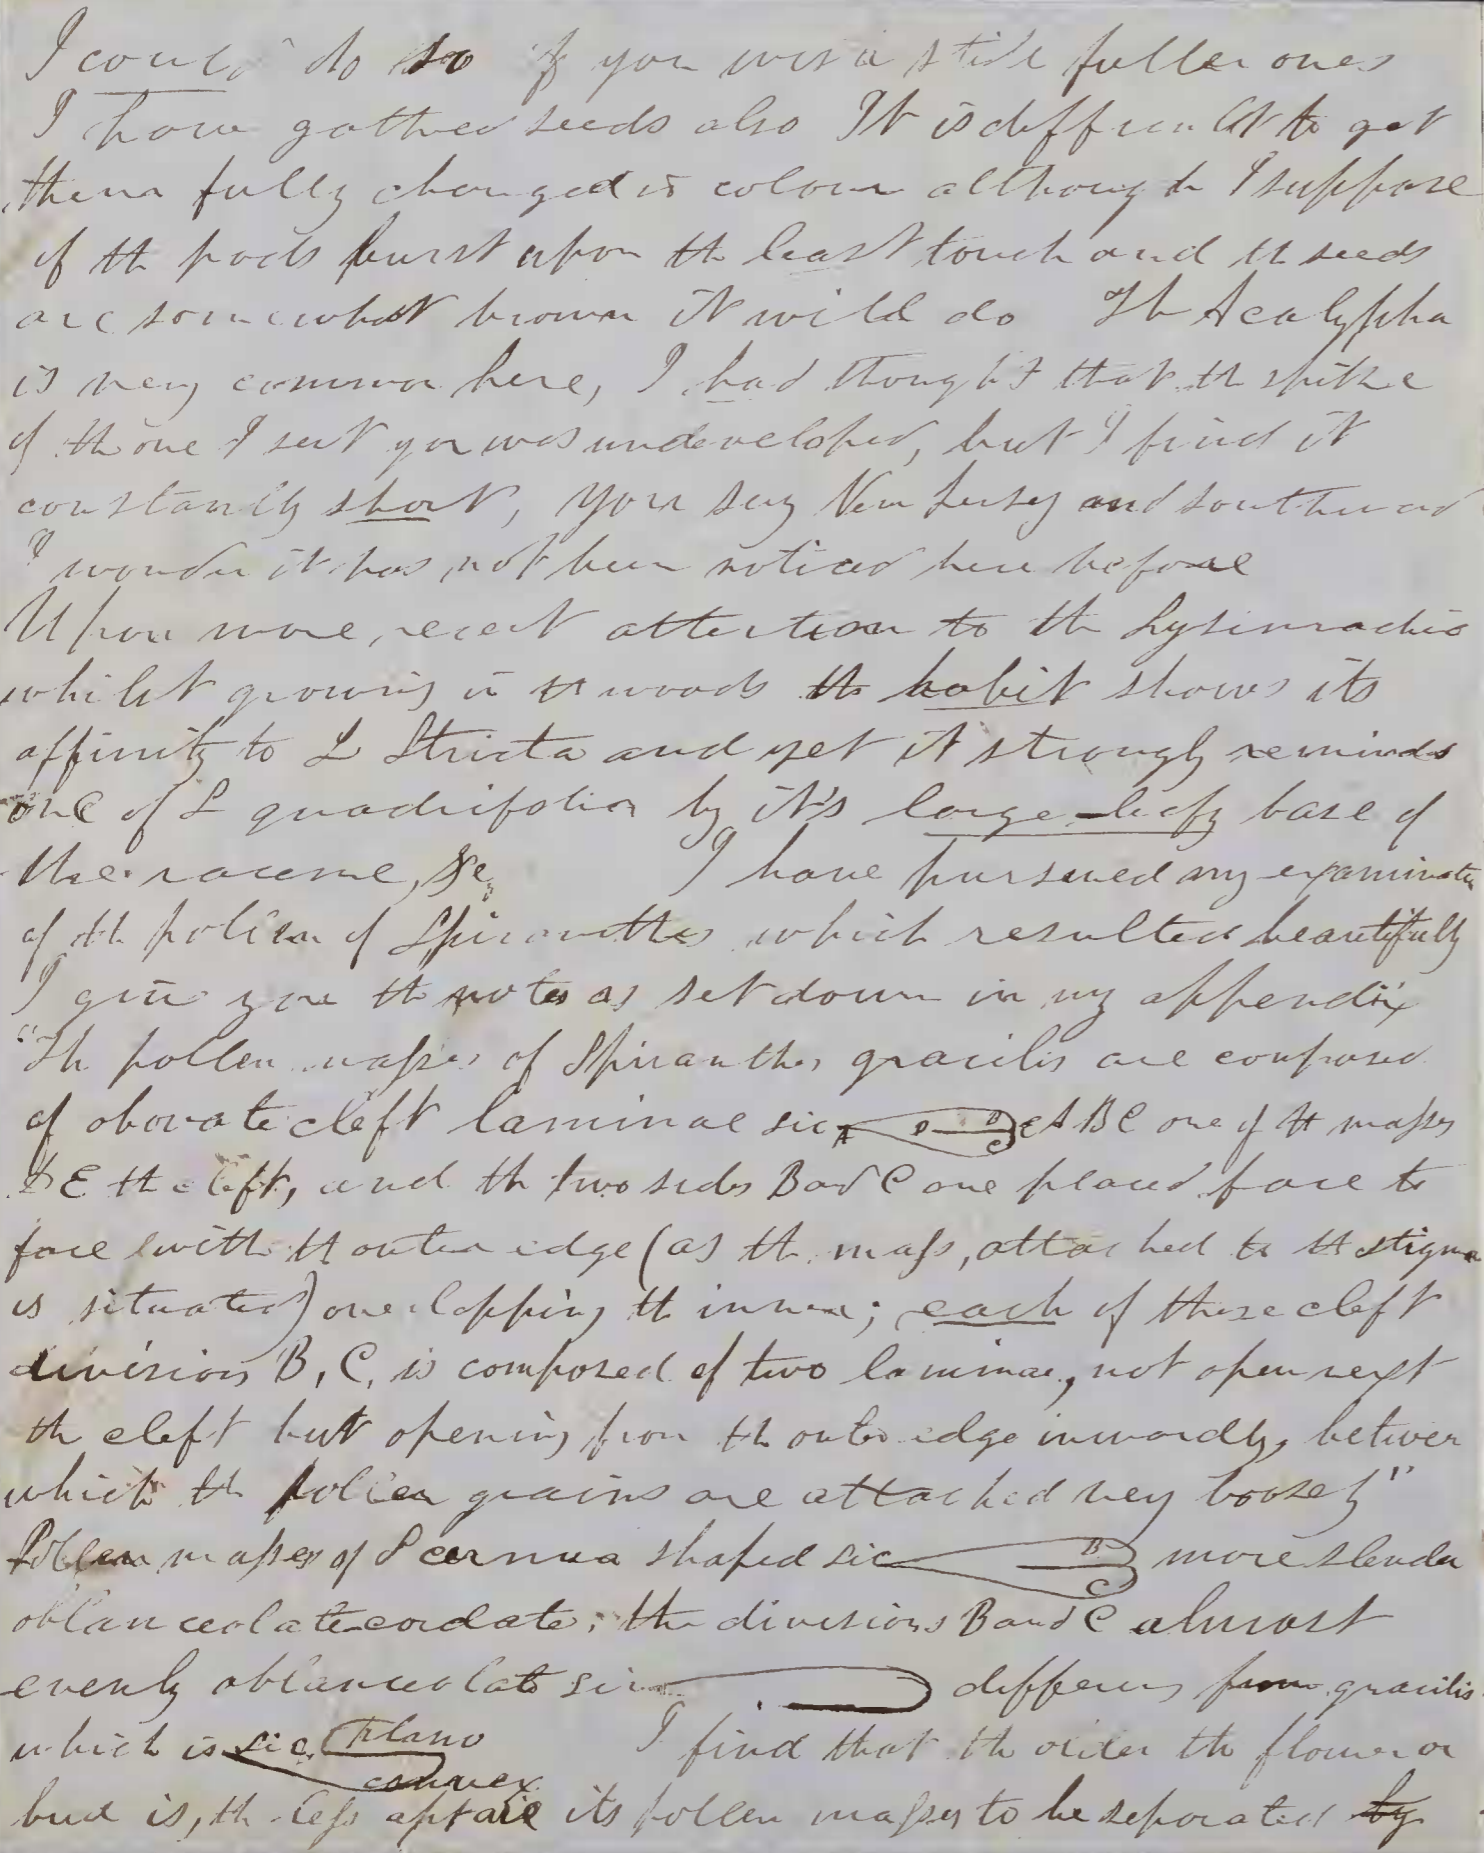 I could do so if you wish still fuller ones
I have gathered seeds also It is difficult to get
them fully changed in colour although I suppose
if the pods burst upon the least touch and the seeds
are somewhat brown it will do The Acalypha
is very common here, I had thought that the spike
of the one I sent you was undeveloped, but I find it
constantly short, You say New Jersey and southward
I wonder it has not been noticed here before
Upon more recent attention to the Lysimachia
whilst growing in the woods the habit shows its
affinity to L Stricta and yet it strongly reminds
one of L quadrifolia by it's large leafy base of
the raceme, &c, I have pursued my examination
of the pollen of Spiranthes which resulted beautifully
I give you the notes as set down in my appendix
"The pollen masses of Spiranthes gracilis are composed
of obovate cleft laminae sic A D B E C A B C one of the masses
D E the cleft, and the two sides B and C are placed face to
face with the outer edge (as the mass, attached to the stigma
is situated) overlapping the inner; each of these cleft
divisions B, C, is composed of two laminae, not open next
the cleft but opening from the outer edge inwardly, between
which the pollen grains are attached very loosely"
Pollen masses of S cernua shaped sic B C more slender
oblanceolate cordate; the divisions B and C almost
evenly oblanceolate sic differing from gracilis
which is sic plano convex I find that the older the flower or
bud is, the less apt are its pollen masses to be separated by